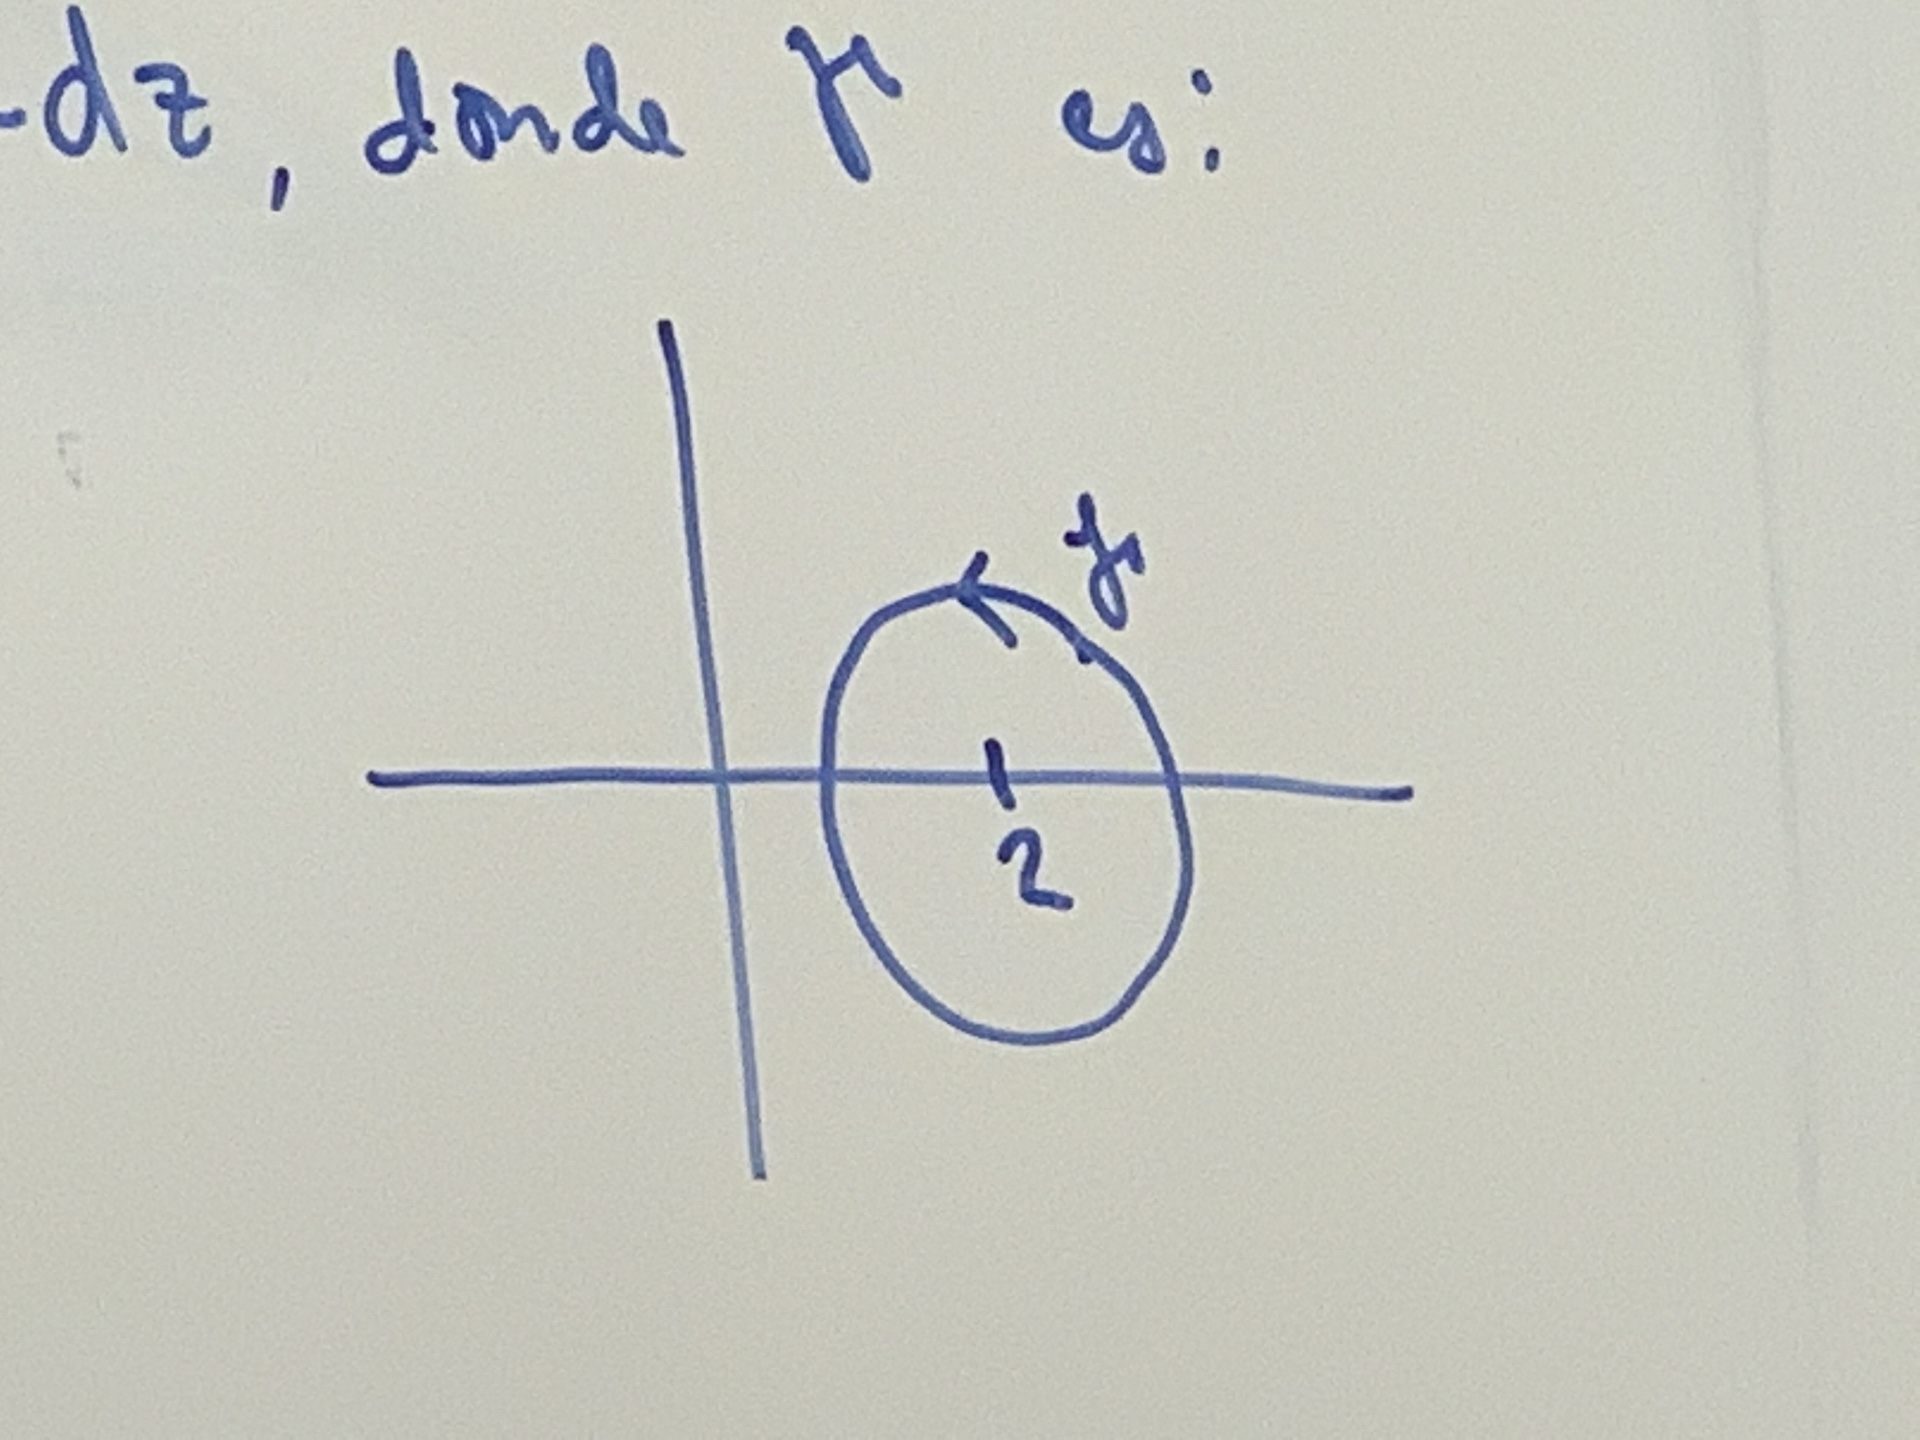 dz, donde γ es:
γ
2